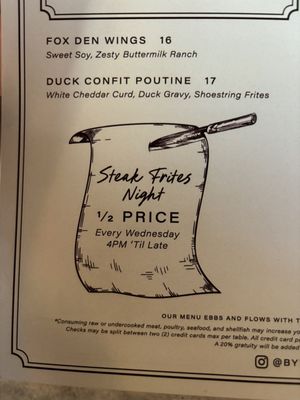 FOX DEN WINGS 16
Sweet Soy, Zesty Buttermilk Ranch
DUCK CONFIT POUTINE 17
White Cheddar Curd, Duck Gravy, Shoestring Frites
Steak Frites
Night
½ PRICE
Every Wednesday
4PM 'Til Late
OUR MENU EBBS AND FLOWS WITH T
*Consuming raw or undercooked meat, poultry, seafood, and shellfish may increase yo
Checks may be split between two (2) credit cards max per table. All credit card p
A 20% gratuity will be added
@BY